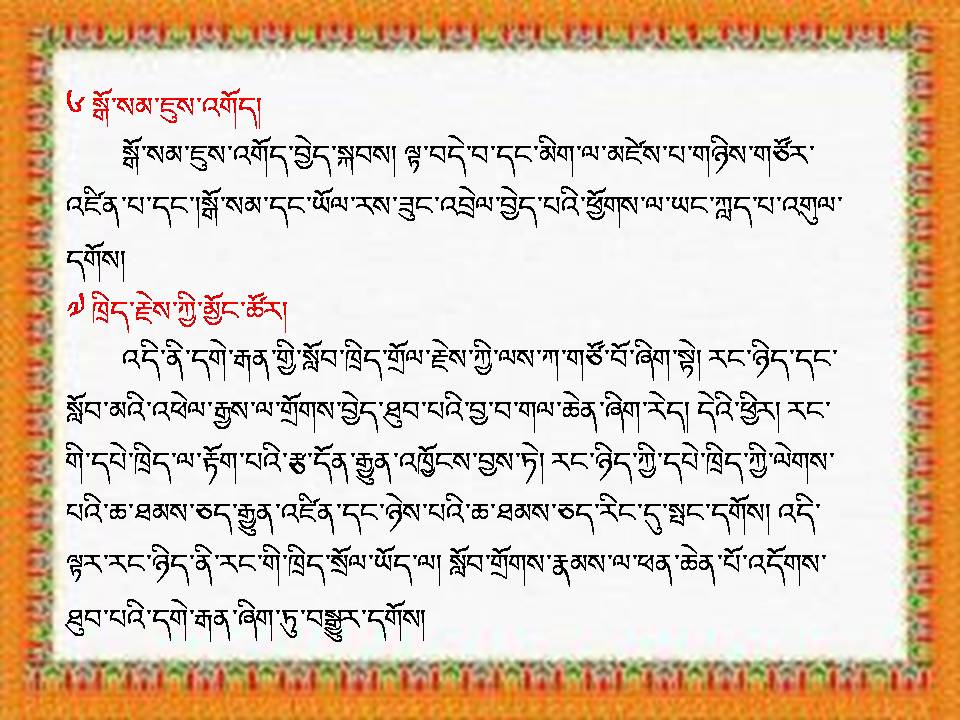 ༦ སྒྲོ་སམ་ཇུས་འགོད།
སྒྲོ་སམ་ཇུས་འགོད་བྱེད་སྐབས། ལྟ་བདེ་བ་དང་མིག་ལ་མཛེས་པ་གཉིས་གཙོར་
འཛིན་པ་དང་།སྒྲོ་སམ་དང་ཡོལ་རས་ཟུང་འབྲེལ་བྱེད་པའི་ཕྱོགས་ལ་ཡང་ཀླད་པ་འགུལ་
དགོས།
༧ ཁྲིད་རྗེས་ཀྱི་མྱོང་ཚོར།
འདི་ནི་དགེ་རྒན་གྱི་སློབ་ཁྲིད་གྲོལ་རྗེས་ཀྱི་ལས་ཀ་གཙོ་བོ་ཞིག་སྟེ། རང་ཉིད་དང་
སློབ་མའི་འཕེལ་རྒྱས་ལ་གྲོགས་བྱེད་ཐུབ་པའི་བྱ་བ་གལ་ཆེན་ཞིག་རེད། དེའི་ཕྱིར། རང་
གི་དཔེ་ཁྲིད་ལ་རྟོག་པའི་རྩ་དོན་རྒྱུན་འཁྱོངས་བྱས་ཏེ། རང་ཉིད་ཀྱི་དཔེ་ཁྲིད་ཀྱི་ལེགས་
པའི་ཆ་ཐམས་ཅད་རྒྱུན་འཛིན་དང་ཉེས་པའི་ཆ་ཐམས་ཅད་རིང་དུ་སྤང་དགོས། འདི་
ལྟར་རང་ཉིད་ནི་རང་གི་ཁྲིད་སྲོལ་ཡོད་ལ། སློབ་གྲོགས་རྣམས་ལ་ཕན་ཆེན་པོ་འདོགས་
ཐུབ་པའི་དགེ་རྒན་ཞིག་ཏུ་བསྒྱུར་དགོས།